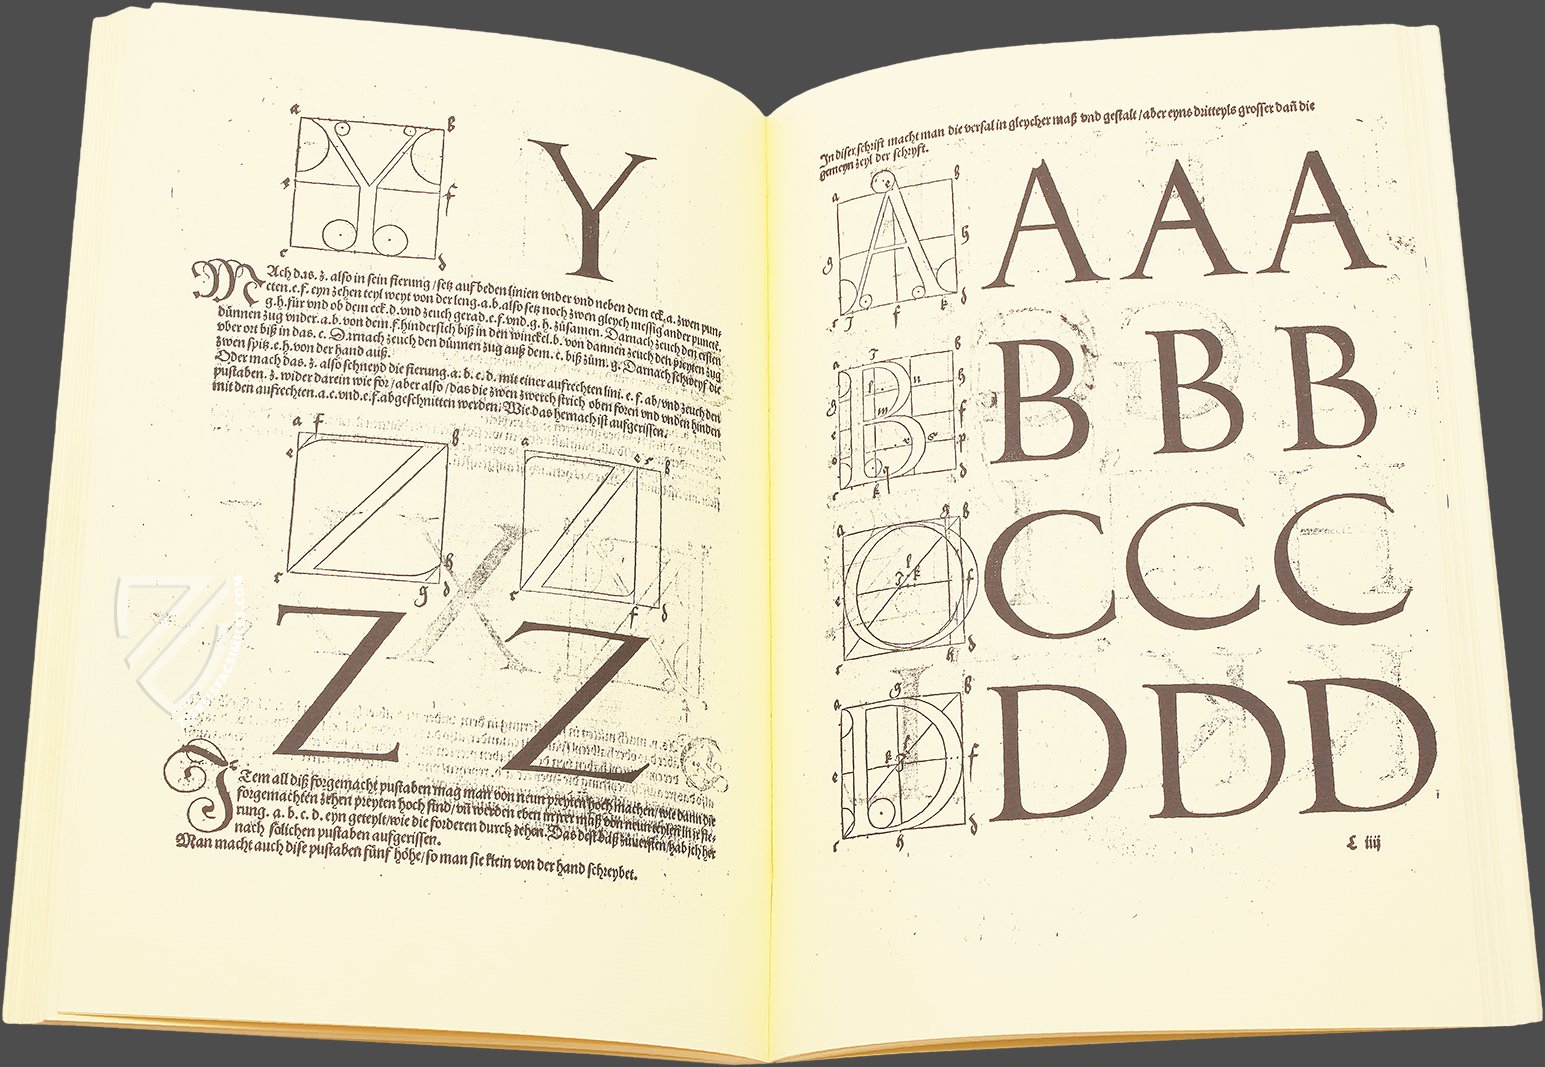 a b
Y
e f
c d
MAch das .z. also in sein fierung/setz auf beden linien vnder vnd neben dem eck .a. zwen pun-
cten .e.f. eyn zehen teyl weyt von der leng .a.b. also setz noch zwen gleych messig ander punckt.
g.h. für vnd ob dem eck .d. vnd zeuch gerad .e.f. vnd .g.h. zůsamen. Darnach zeuch den ersten
dünnen zug vnder .a.b. von dem .f. hindersich biß in den winckel .b. von dannen zeuch den preyten zug
vber ort biß in das .c. Darnach zeuch den dünnen zug auß dem .c. biß zům .g. Darnach schweyf die
zwen spitz .e.h. von der hand auß.
Oder mach das .z. also schneyd die fierung .a.b.c.d. mit einer aufrechten lini .e.f. ab/vnd zeuch den
pustaben .z. wider darein wie for/aber also/das die zwen zwerch strich oben foren vnd vnden hinden
mit den aufrechten .a.c. vnd .e.f. abgeschnitten werden/Wie das hernach ist aufgerissen.
a f b a e b
e
h
c g d c f d
Z Z
ITem all diß forgemacht pustaben mag man von neun preyten hoch machen/wie dann die
forgemachten zehen preyten hoch sind/vñ werden eben in jrer maß von neun teylen in je fie-
rung .a.b.c.d. eyn geteylt/wie die forderen durch zehen. Das dest baß zůuersten/hab jch her
nach solichen pustaben aufgerissen.
Man macht auch dise pustaben fünf höhe/so man sie klein von der hand schreybet.
In diser schrift macht man die versal in gleycher maß vnd gestalt/aber eyns dritteyls grosser dañ die
gemeyn zeyl der schryft.
a e b
g h
c i f k d
A A A
a i b
l n h
g m f
e r o p
c k q d
B B B
a g b
l
i k f
e
c h d
C C C
a g b
e k i f
c h d
D D D
L iiij